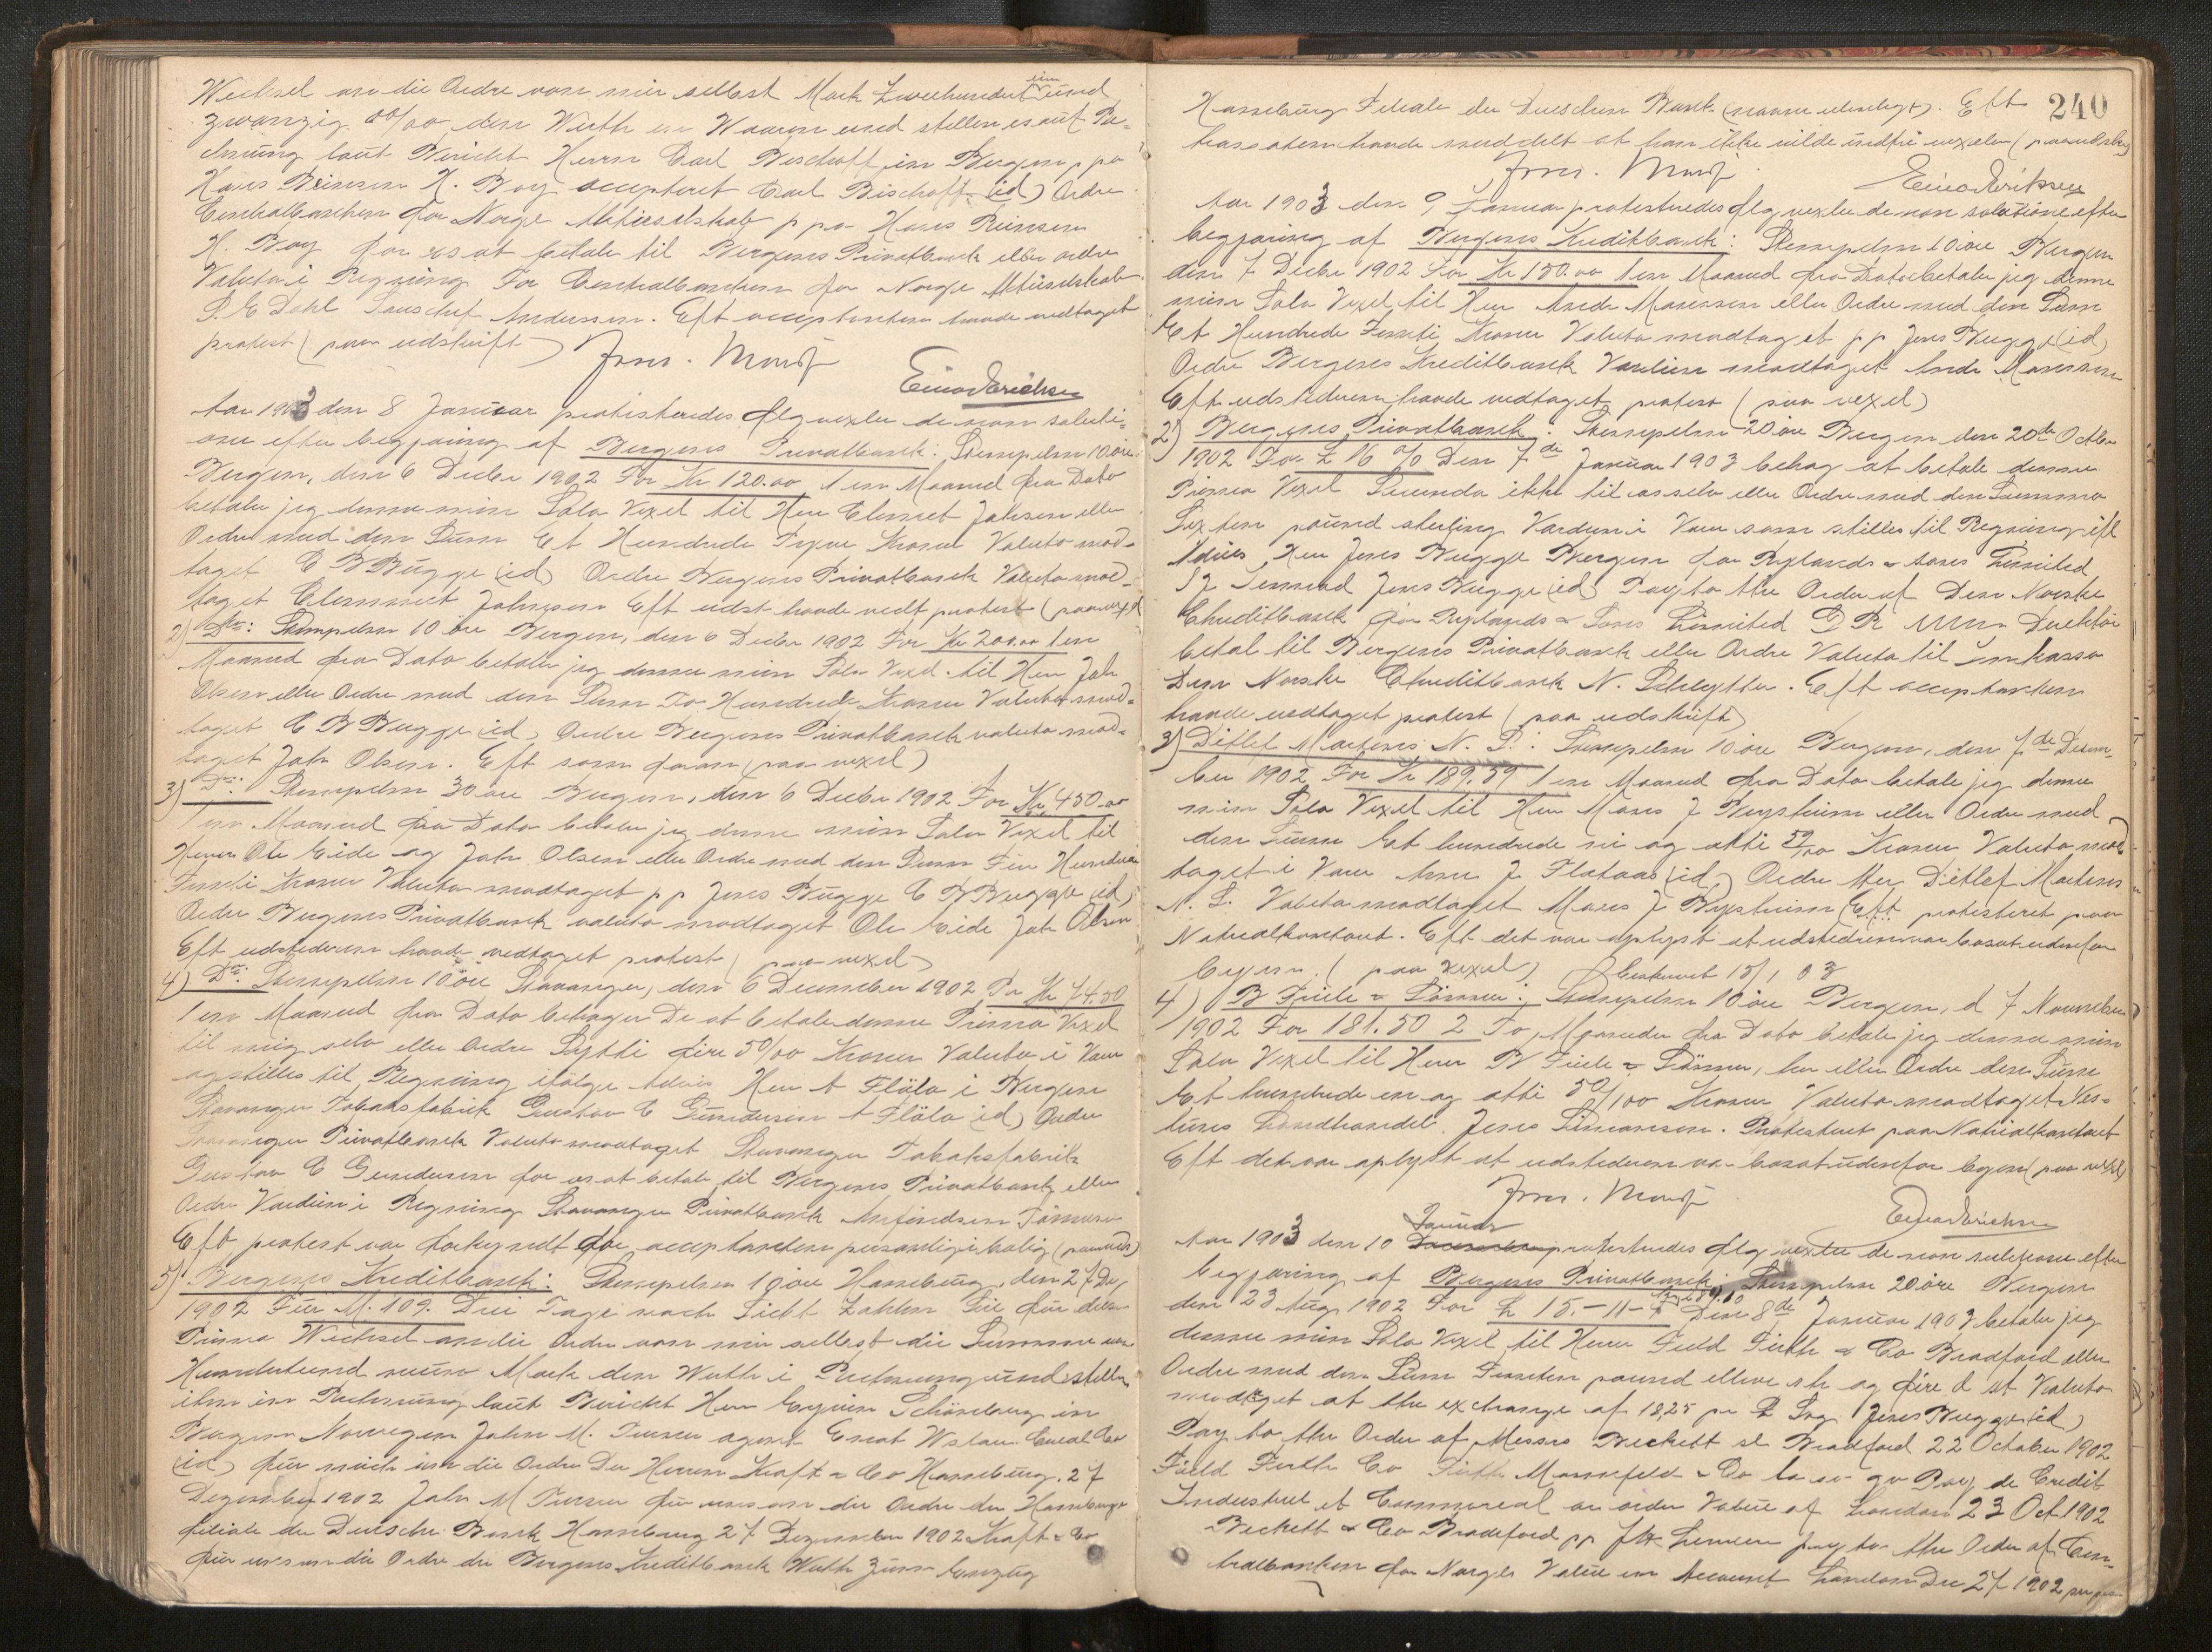 Wechsel an die Ordre von mir selbst Mark Zweihundert ein und
zwanzig 00/00 den Werth in Waaren und stellen es auf Re=
chnung laut Bericht Herrn Carl Bischoff in Bergen p pa
Hans Reinsen H. Boy accepteret Carl Bischoff (id) Ordre
Centralbanken for Norge Aktieselskab p pa Hans Reinsen
H. Boy for os at betale til Bergens Privatbank eller ordre
Valuta i Regning For Centralbanken for Norge Aktieselskab
S. E Dahl Andersen. Eft acceptanten havde vedtaget
protest (paa udskrift)
Einar Erichsen
Aar 1903 den 8 Januar protesteredes flg vexler de non soluti=
one efter begjæring af Bergens Privatbank: Stempelm 10 øre
Bergen, den 6 Decbr 1902 For Kr 120.00 1 en Maaned fra Dato
betaler jeg denne min Sola Vexel til Herr Clemet Johnsen eller
Ordre med den Sum Et Hundrede Tyve Kroner Valuta mod=
taget C B Bugge (id) Ordre Bergens Privatbank Valuta mod=
taget Clemmet Johnsen Eft udst havde vedt protest (paa vexel)
2) Do: Stempelm 10 øre Bergen, den 6 Decbr 1902 For Kr 200.00 1 en
Maaned fra Dato betaler jeg denne min Sola Vexel til Herr Joh
Olsen eller Ordre med den Sum To Hundrede Kroner Valuta mod=
taget C B Bugge (id) Ordre Bergens Privatbank valuta mod=
taget Joh Olsen. Eft som foran (paa vexel)
3) Do: Stempelm 30 øre Bergen, den 6 Decbr 1902 For Kr 450.00
1 en Maaned fra Dato betaler jeg denne min Sola Vexel til
Herrer Ole Eide og Joh Olsen eller Ordre med den Sum Fire Hundrede
Femti Kroner Valuta modtaget pp Jens Bugge C B Bugge (id)
Ordre Bergens Privatbank valuta modtaget Ole Eide Joh Olsen
Eft udstederen havde vedtaget protest (paa vexel)
4) Do: Stempelm 10 øre Stavanger, den 6 December 1902 For Kr 74.50
1 en Maaned fra Dato behager De at betale denne Prima Vexel
til mig selv eller Ordre Sytti fire 50/00 Kroner Valuta i Varer
og stilles til Regning ifølge Advis Herr A Fløla i Bergen
Stavanger Tobaksfabrik Gustav E Gundersen A Fløla (id) Ordre
Stavanger Privatbank Valuta modtaget Stavanger Tobaksfabrik
Gustav E Gundersen for os at betale til Bergens Privatbank eller
Ordre Værdien i Regning Stavanger Privatbank Anfindsen
Eft protest var forkyndt for acceptanten personlig i bolig
5) Bergens Kreditbank: Stempelm 10 øre Hamburg, den 27 De
1902 Für M. 109. Drei Tage nach Sicht Zahlen Sie für diesen
Prima Wechsel an die Ordre von mir selbst die Summe von
Hundertund neun Mark den Werth i Rechnung und stellen
ihn in Rechnung laut Bericht Herr Schönberg in
Bergen Norwegen John M.
(id) für mich an die Ordre Der Herren Kraft & Co Hamburg. 27
Dezember 1902 John M für uns an die Ordre der Hamburger
filiale der Deutsche Bank Hamburg 27 Dezember 1902 Kraft & Co
für uns an die Ordre der Bergens Kreditbank Werth zum Einzug
240
Hamburg Filiale der Deutschen Bank (navne ulæselige). Eft
trassaten havde meddelt at han ikke vilde indfri vexelen (paa udskrift)
Einar Erichsen
Aar 1903 den 9 Januar protesteredes flg vexler de non solutione efter
begjæring af Bergens Kreditbank: Stempelm 10 øre Bergen
den 7 Decbr 1902 For Kr 150.00 1 en Maaned fra Dato betaler jeg denne
min Sola Vexel til Herr Andr Monssen eller Ordre med den Sum
Et Hundrede Femti Kroner Valuta modtaget pp Jens Bugge (id)
Ordre Bergens Kreditbank Værdien modtaget Andr Monssen
Eft udstederen havde vedtaget protest (paa vexel)
2) Bergens Privatbank: Stempelm 20 øre Bergen den 20de Octbr
1902 For £ 16 0/0 Den 7de Januar 1903 behag at betale denne
Prima Vexel Secunda ikke til os selv eller Ordre med den Summa
Sexten pound sterling Værdien i Varer som stilles til Regning ifl
Advis Herr Jens Bugge Bergen for Rylands & Sons Limited
Jens Bugge (id) Pay to the Order of Den Norske
Creditbank for Rylands & Sons Limited Direktør
betal til Bergens Privatbank eller Ordre Valuta til Inkasso
Den Norske Creditbank N. Schlytter. Eft acceptanten
havde vedtaget protest (paa udskrift)
3) Ditlef Martens N. S.: Stempelm 10 øre Bergen, den 7de Decem=
ber 1902 For Kr 189.59 1 en Maaned fra Dato betale jeg denne
min Sola Vexel til Herr Mons J Bergheim eller Ordre med
den Summ Et hundrede ni og otti 59/00 Kroner Valuta mod
taget i Varer J. Flataas (id) Ordre Herr Ditlef Martens
N. S. Valuta modtaget Mons J Bergheim (Eft protesteret paa
Notarialkontoret. Eft det var oplyst at udstederen var bosat udenfor
byen. (paa vexel) 15/1 03
4) B Friele & Sønner: Stempelm 10 øre Bergen, d 7 November
1902 For 181.50 2 To Maaneder fra Dato betale jeg denne min
Sola Vexel til Herr B Friele & Sønner, her eller Ordre den Sum
Et hundrede en og otti 50/100 Kroner Valuta modtaget Ves=
tnes Landhandel. Jens Simonsen. Protesteret paa Notarialkontoret
Eft det var oplyst at udstederen var bosat udenfor byen (paa vexel)
Einar Erichsen
Januar
Aar 1903 den 10 protesteredes flg vexler de non solutione efter
begjæring af Bergens Privatbank: Stempelm 20 øre Bergen
den 23 Aug 1902 For £ 15.-11-4 Den 8de Januar 1903 betaler jeg
denne min Sola Vexel til Herrer Field Firth & Co Bradford eller
Ordre med den Sum Femten pound elleve sh og fire d st Valuta
modtaget at the exchange af 18,25 pr £ Jens Bugge (id)
Pay to the Order of Messrs Beckett Bradford 22 October 1902
Field Firth Co Pay de Credit
Industriel et Commercial or order Value of London 23 Oct 1902
Beckett & Co Bradford pp pay to the Order of Cen=
tralbanken for Norge Value in Account London Dec 27 1902